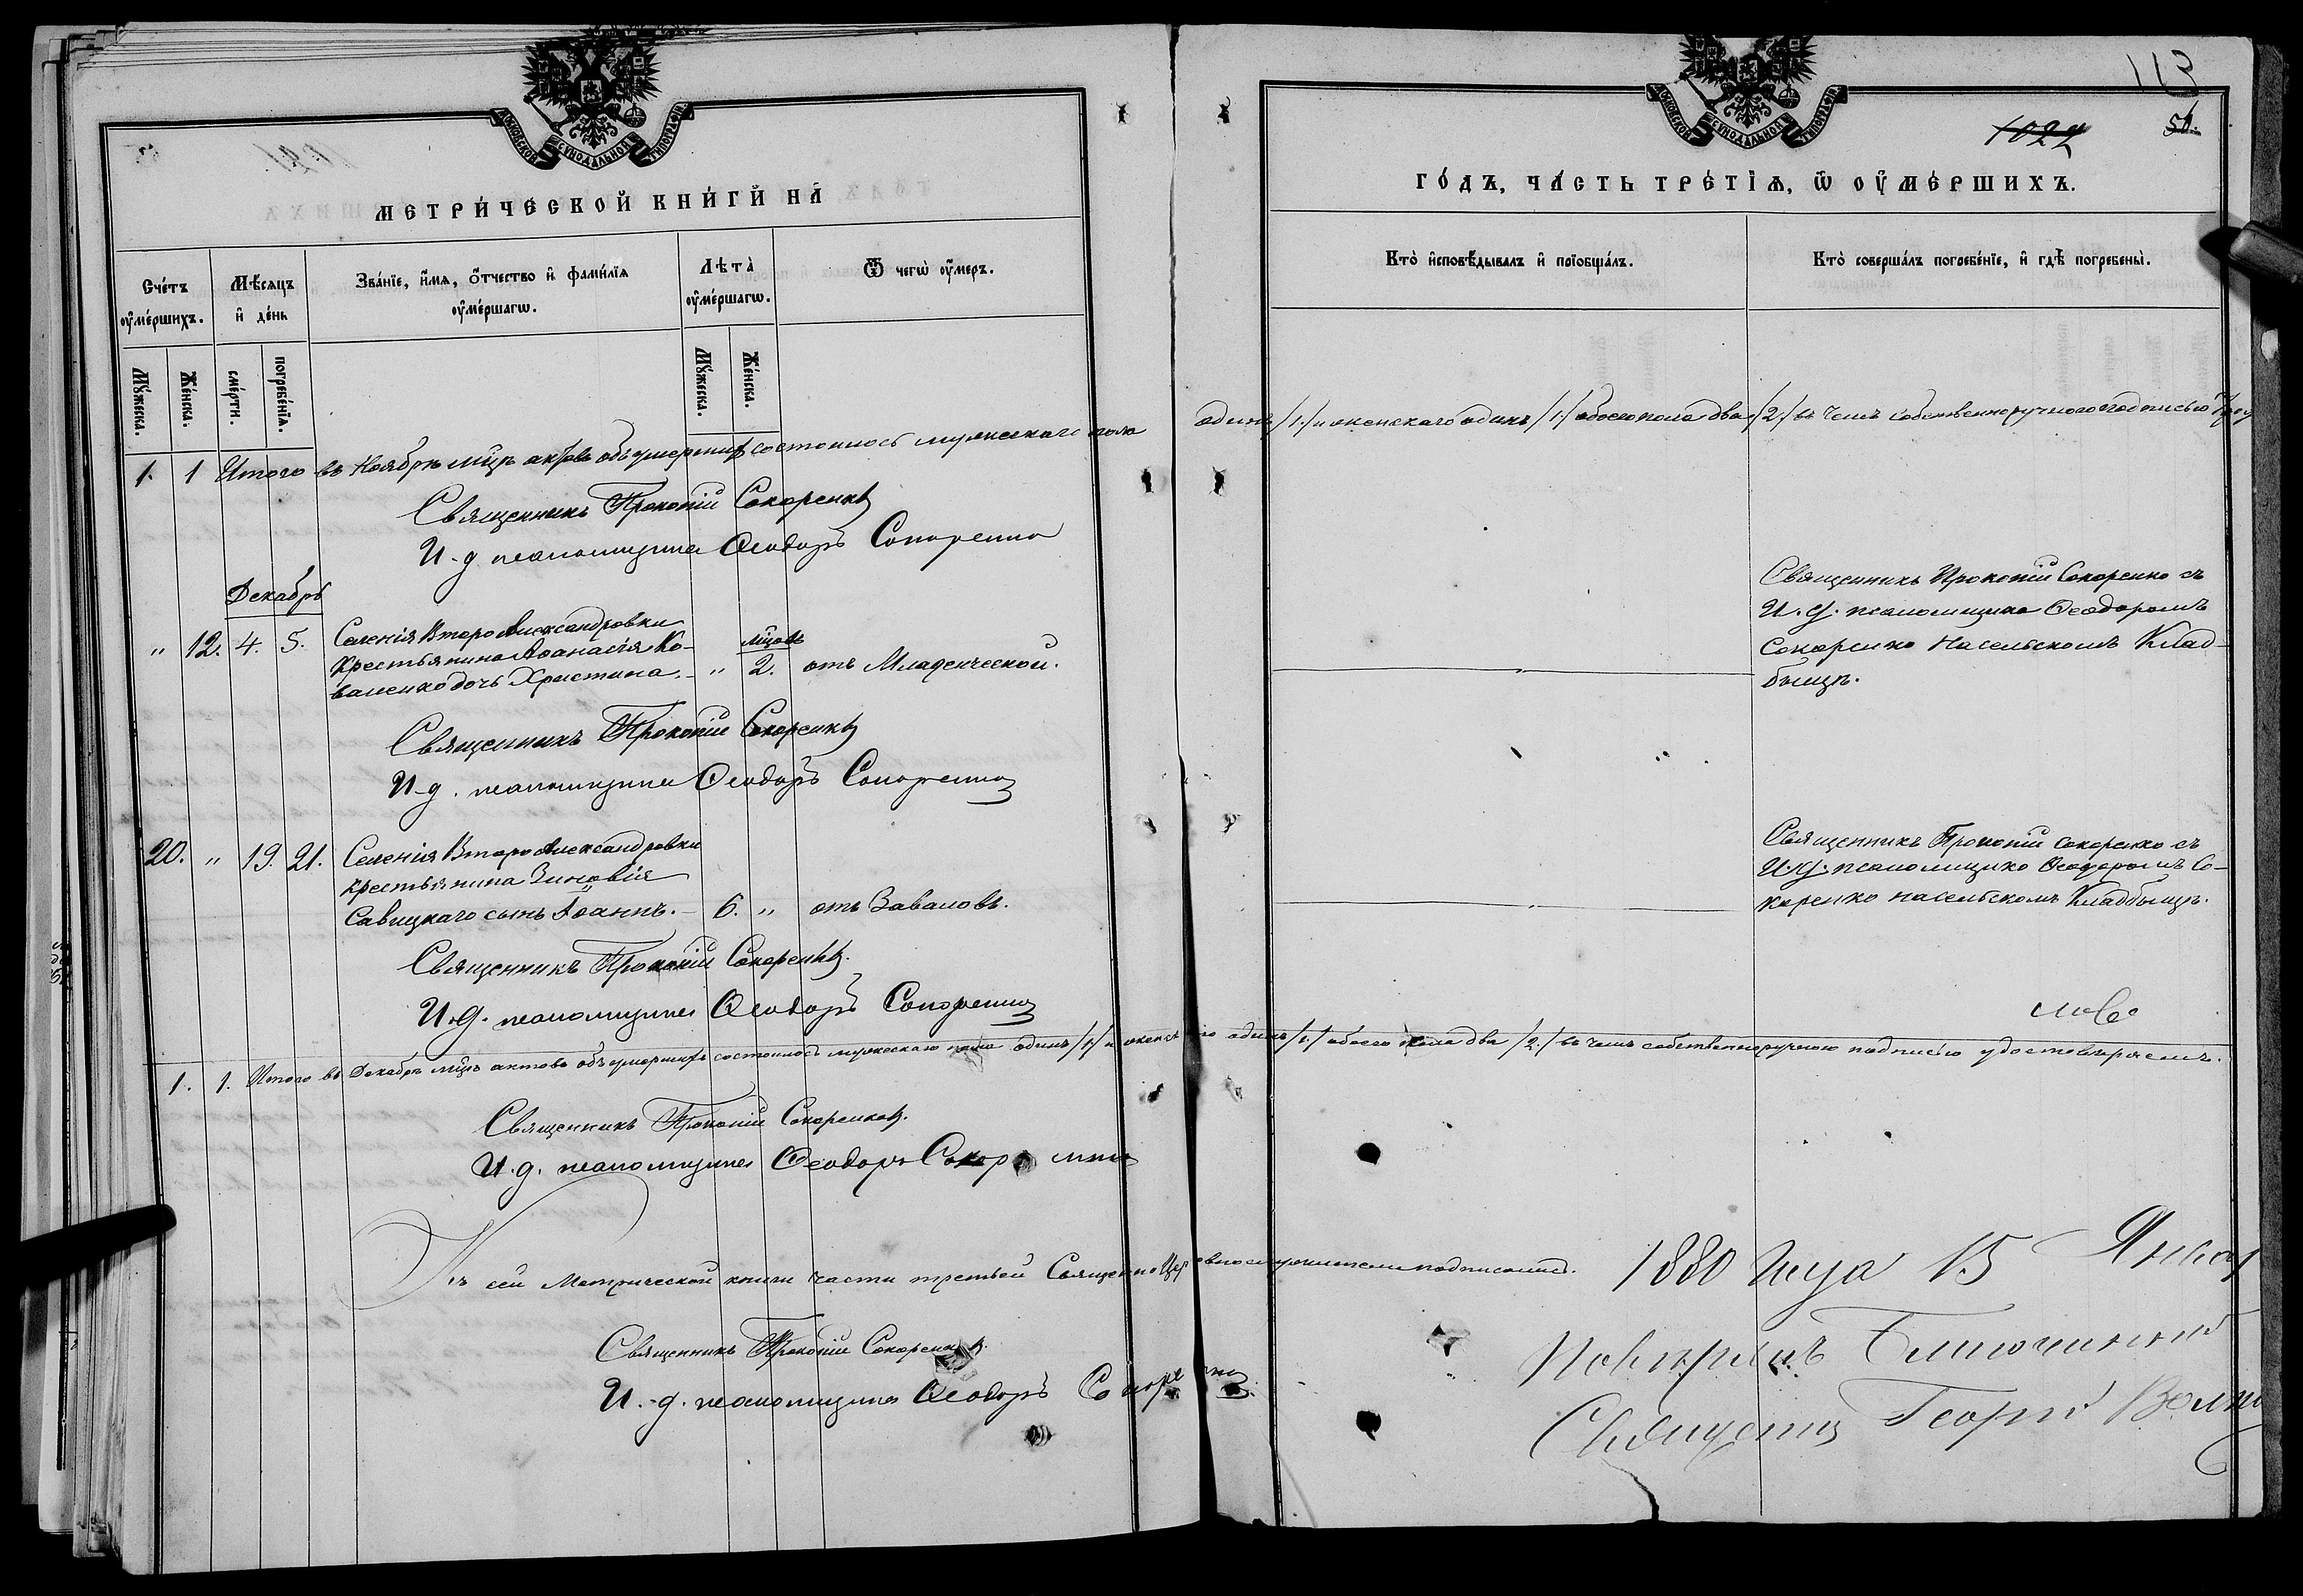 113
1022
51.
МЕТРИ́ЧЕСКОЙ КНИ́ГИ НА
ГО́ДЪ, ЧА́СТЬ ТРЕ́ТІѦ, Ѿ ОУ҆МЕ́РШИХЪ.
Сче́тъ оу҆ме́ршихъ.
Мѣ́сѧцъ и҆ де́нь
Зва́нїе, и҆́мѧ, о҆́тчество и҆ фами́лїѧ оу҆ме́ршагѡ.
Лѣ́та̀ оу҆ме́ршагѡ.
Ѿ чегѡ̀ оу҆́меръ.
Кто̀ и҆сповѣ́дывалъ и҆ прїобща́лъ.
Кто̀ соверша́лъ погребе́нїе, и҆ гдѣ̀ погребены̀.
Мꙋ́жеска.
Же́нска.
сме́рти.
погребе́нїѧ.
Мꙋ́жеска.
Же́нска.
1. 1 Итого въ Ноябрѣ мцѣ актовъ объ умершихъ состоялось мужескаго пола одинъ /1/ и женскаго одинъ /1/ обоего пола два /2/ въ чемъ собственноручною подписью
Священникъ Прокопій Сокоренко
И. д. псаломщика Ѳеодоръ Сокоренко
Декабрь
" 12. 4. 5. Селенія Второ Александровки
крестьянина Аѳанасія Ко-
валенко дочь Христина. - " мцовъ 2. отъ Младенческой.
Священникъ Прокопій Сокоренко съ
И. д. псаломщика Ѳеодоромъ
Сокоренко на сельскомъ Клад-
бищѣ.
Священникъ Прокопій Сокоренко
И. д. псаломщика Ѳеодоръ Сокоренко
20. " 19. 21. Селенія Второ Александровки
крестьянина Зиновія
Савицкаго сынъ Іоаннъ. - 6. " отъ Заваловъ.
Священникъ Прокопій Сокоренко съ
И. д. псаломщика Ѳеодоромъ Со-
коренко на сельскомъ Кладбищѣ.
Священникъ Прокопій Сокоренко.
И. д. псаломщика Ѳеодоръ Сокоренко
1. 1. Итого въ Декабрѣ мцѣ актовъ объ умершихъ состоялось мужескаго пола одинъ /1/ и женскаго одинъ /1/ обоего пола два /2/ въ чемъ собственноручною подписью удостовѣряемъ.
Священникъ Прокопій Сокоренко.
И. д. псаломщика Ѳеодоръ Сокоренко
Къ сей Метрической книги части третьей Священно Церковнослужители подписались.
Священникъ Прокопій Сокоренко.
И. д. псаломщика Ѳеодоръ Сокоренко.
1880 года 15 Января
повѣрялъ Благочинный
Священникъ Георгій